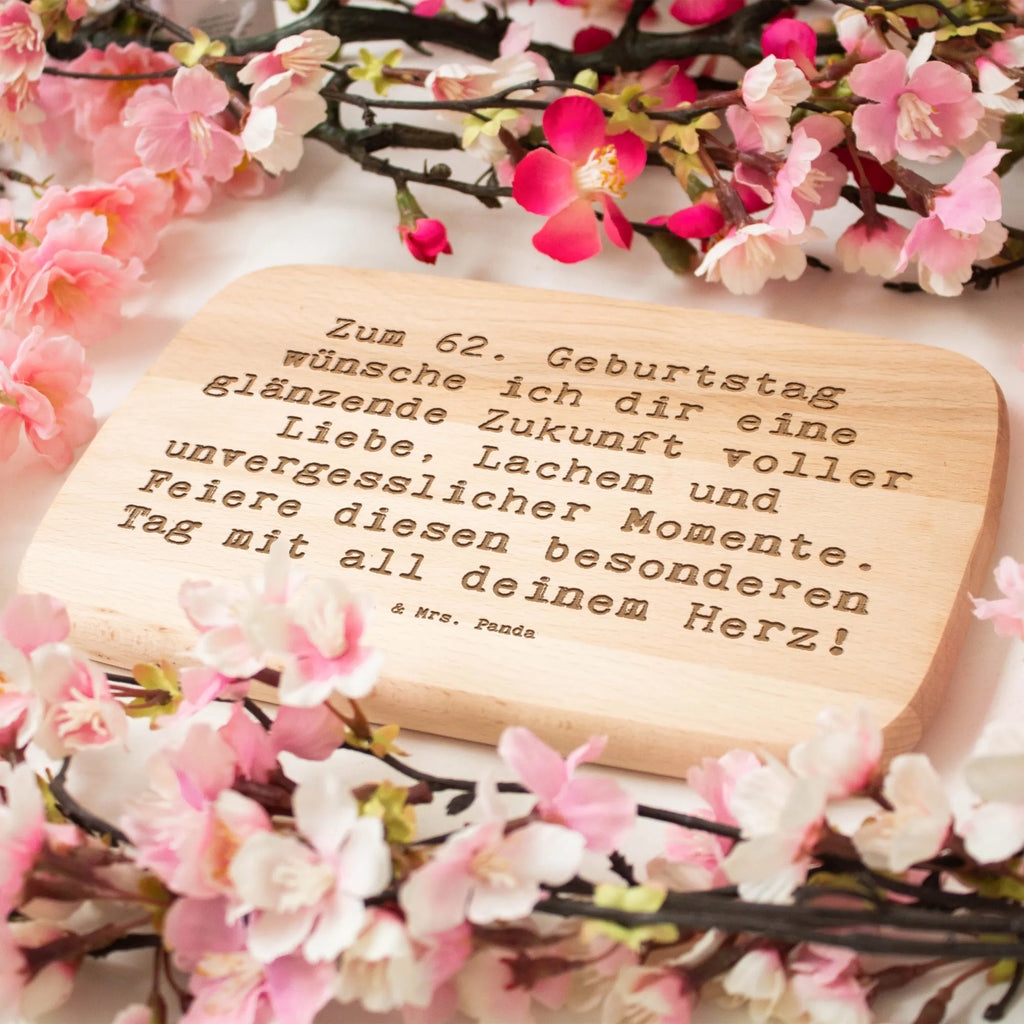 Zum 62. Geburtstag
wünsche ich dir eine
glänzende Zukunft voller
Liebe, Lachen und
unvergesslicher Momente.
Feiere diesen besonderen
Tag mit all deinem Herz!
& Mrs. Panda